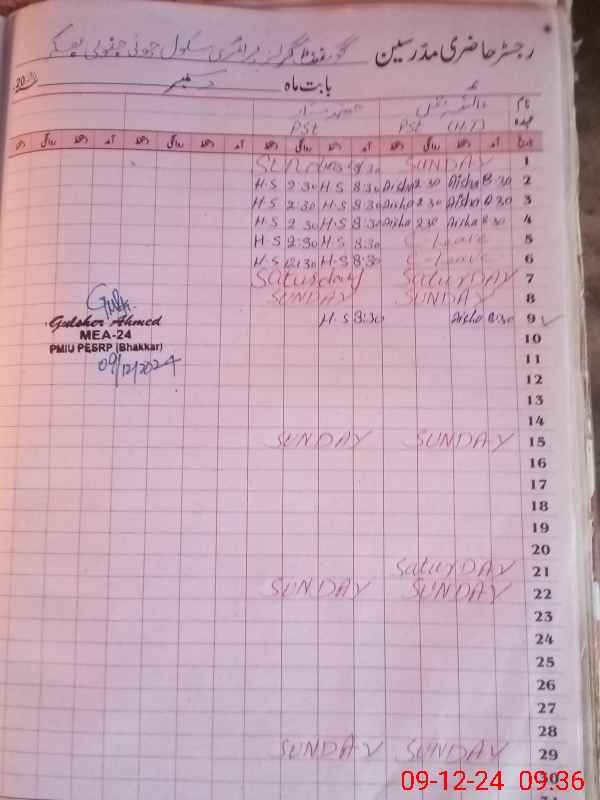 رجسٹر حاضری مدرسین گورنمنٹ گرلز پرائمری سکول جھوک
بابت ماہ دسمبر 20
نام
عہدہ PST (H.T) PST
تاریخ آمد دستخط روانگی دستخط آمد دستخط روانگی دستخط آمد دستخط روانگی دستخط
1 SUNDAY
2 Aisha 8:30 Aisha 2:30 H-S 8:30 H-S 2:30
3 Aisha 8:30 Aisha 2:30 H-S 8:30 H-S 2:30
4 Aisha 8:30 Aisha 2:30 H-S 8:30 H-S 2:30
5 C-Leave H-S 8:30 H-S 2:30
6 C-Leave H-S 8:30 H-S 12:30
7 SatURDAY Saturday
8 SUNDAY SUNDAY
9 Aisha 8:30 H-S 8:30
Gulsher Ahmed
MEA-24
PMIU PESRP (Bhakkar)
09/12/2024
10
11
12
13
14
15 SUNDAY SUNDAY
16
17
18
19
20
21 SaturDAY
22 SUNDAY SUNDAY
23
24
25
26
27
28
29 SUNDAY SUNDAY
30
09-12-24 09:36